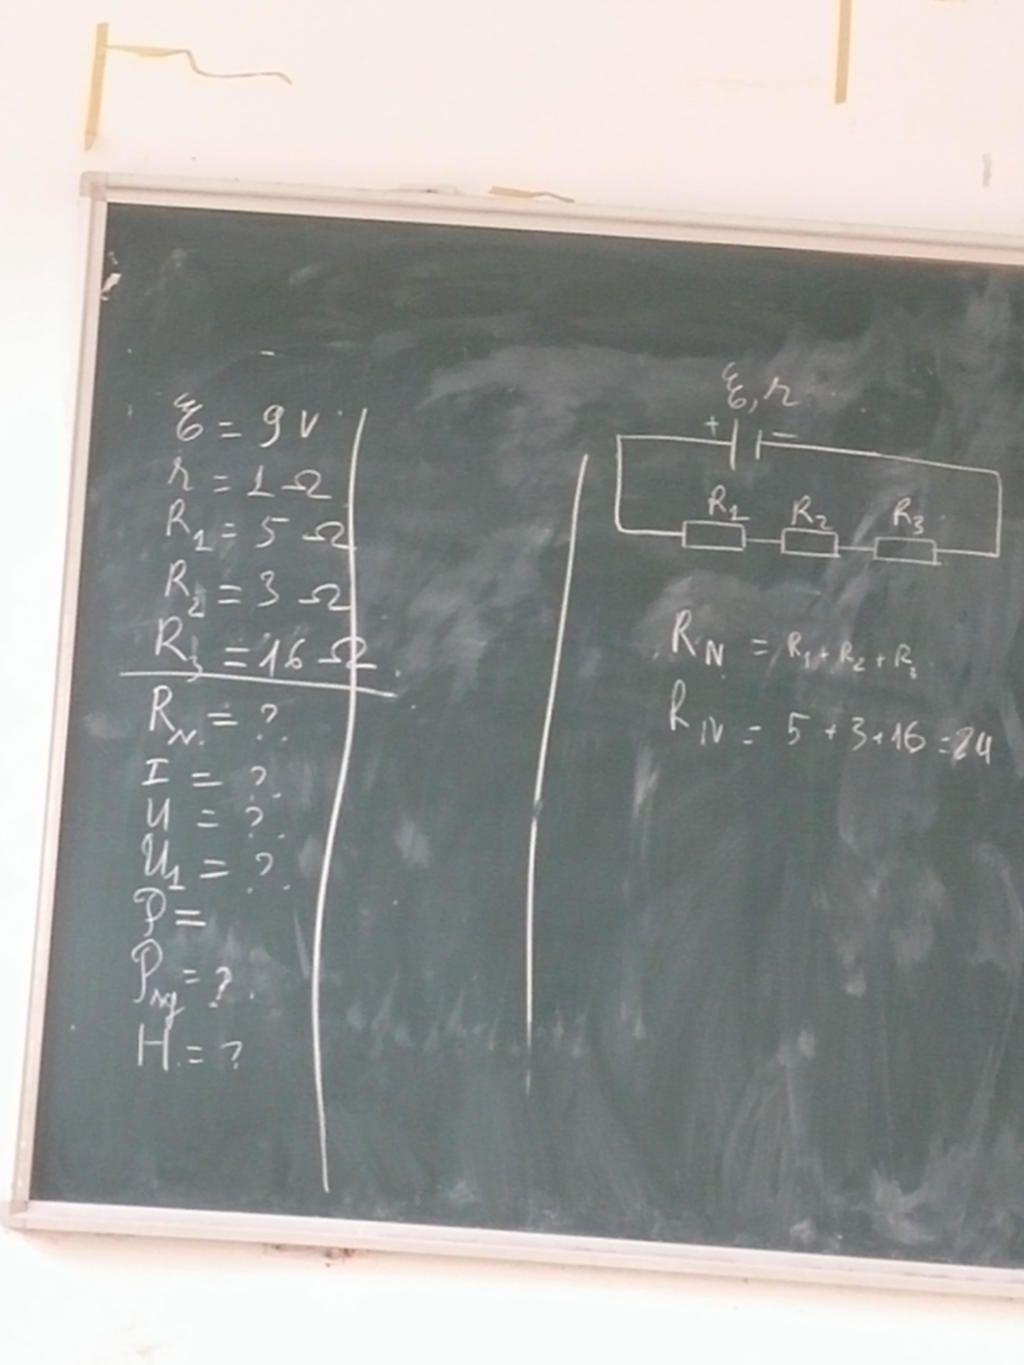 ℰ = 9 V
r = 1 Ω
R₁ = 5 Ω
R₂ = 3 Ω
R₃ = 16 Ω
R_N = ?
I = ?
U = ?
U₁ = ?
P =
P_ng = ?
H = ?
ℰ, r
+ −
R₁ R₂ R₃
R_N = R₁ + R₂ + R₃
R_N = 5 + 3 + 16 = 24